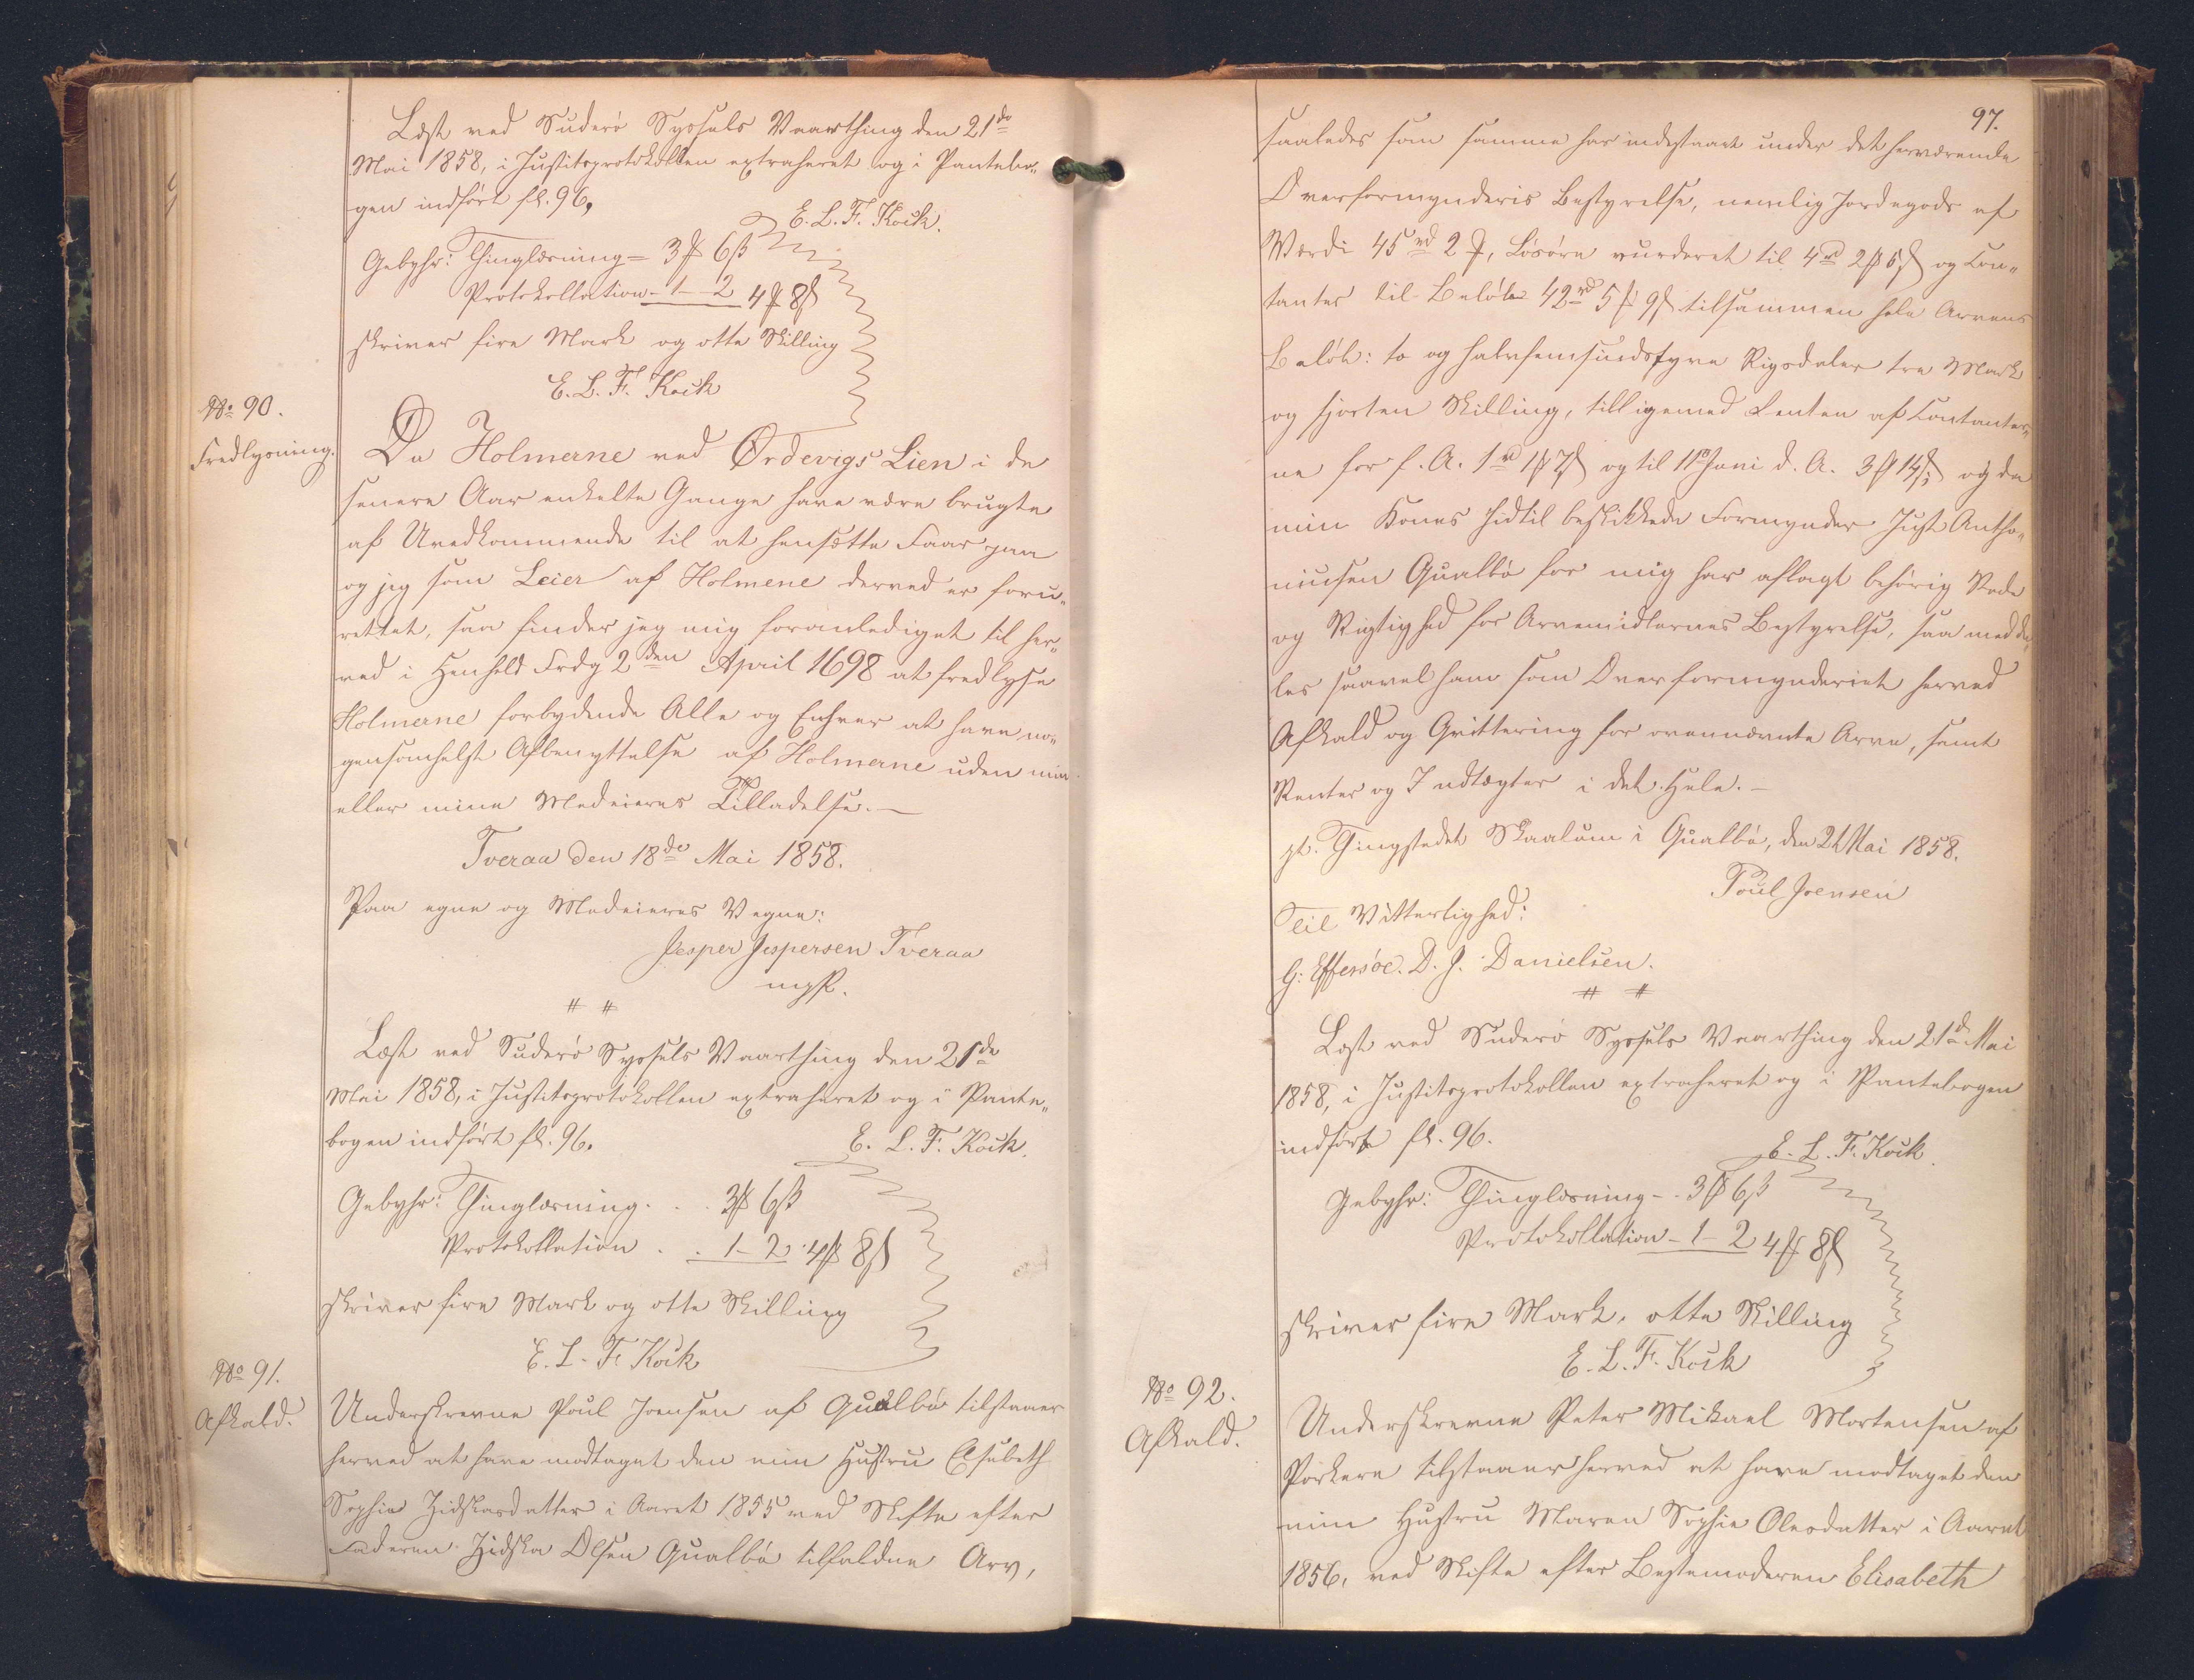 Læst ved Suderø Syssels Vaarthing den 21de
Mai 1858, i Justitsprotokollen extraheret og i Pantebo„
gen indført fl. 96.
E. L. F. Kock.
Gebyhr: Thinglæsning = 3 ℔ 6 ß
Protokollation - 1 - 2 4 ℔ 8 ß
skriver fire Mark og otte Skilling
E. L. F. Kock
No 90.
Fredlysning.
Da Holmerne ved Ørdevigs Lien i de
senere Aar enkelte Gange have være brugte
af Uvedkommende til at hensætte Faar paa
og jeg som Leier af Holmene derved er foru„
rettet, saa finder jeg mig foranlediget til her„
ved i Henhold Frdg 2den April 1698 at fredlyse
Holmerne forbydende Alle og Enhver at have no„
gensomhelst Afbenyttelse af Holmerne uden min
eller mine Medeieres Tilladelse. —
Tveraa den 18de Mai 1858.
Paa egne og Medeieres Vegne:
Jesper Jespersen Tveraa
mpp.
# #
Læst ved Suderø Syssels Vaarthing den 21de
Mai 1858, i Justitsprotokollen extraheret og i Pante„
bogen indført fl. 96.
E. L. F. Kock.
Gebyhr: Thinglæsning . . . 3 ℔ 6 ß
Protokollation . . 1 - 2 . 4 ℔ 8 ß
skriver fire Mark og otte Skilling
E. L. F. Kock
No 91.
Afkald.
Underskrevne Poul Joensen af Qualbø tilstaaer
herved at have modtaget den min Hustru Elsebeth
Sophie Zidskasdatter i Aaret 1855 ved Skifte efter
Faderen Zidska Olsen Qualbø tilfaldne Arv,
97.
saaledes som samme har indestaaet under det herværende
Overformynderis Bestyrelse, nemlig Jordegods af
Værdi 45 rd 2 ℔, Løsøre vurderet til 4 rd 2 ℔ 5 ß og Con„
tanter til Beløb 42 rd 5 ℔ 9 ß tilsammen hele Arvens
Beløb: to og halvfemsindstyve Rigsdaler tre Mark
og fjorten Skilling, tilligemed Renten af Contanter„
ne for f. A. 1 rd 1 ℔ 7 ß og til 11te Juni d. A. 3 ℔ 14 ß; og da
min Kones hidtil beskikkede Formynder Just Antho„
niusen Qualbø for mig har aflagt behørig Rede
og Rigtighed for Arvemidlernes Bestyrelse, saa medde„
les saavel ham som Overformynderiet herved
Afkald og Qvittering for ovennævnte Arv, samt
Renter og Indtægter i det Hele. —
pt. Thingstedet Skaalum i Qualbø, den 21 Mai 1858.
Poul Joensen
Til Vitterlighed:
G. Effersøe. D. J. Danielsen.
# #
Læst ved Suderø Syssels Vaarthing den 21de Mai
1858, i Justitsprotokollen extraheret og i Pantebogen
indført fl. 96.
E. L. F. Kock
Gebyhr: Thinglæsning - . 3 ℔ 6 ß
Protokollation - 1 - 2 4 ℔ 8 ß
skriver fire Mark, otte Skilling
E. L. F. Kock
No 92.
Afkald.
Underskrevne Peter Mikael Mortensen af
Porkere tilstaaer herved at have modtaget den
min Hustru Maren Sophie Olesdatter i Aaret
1856, ved Skifte efter Bestemoderen Elisabeth